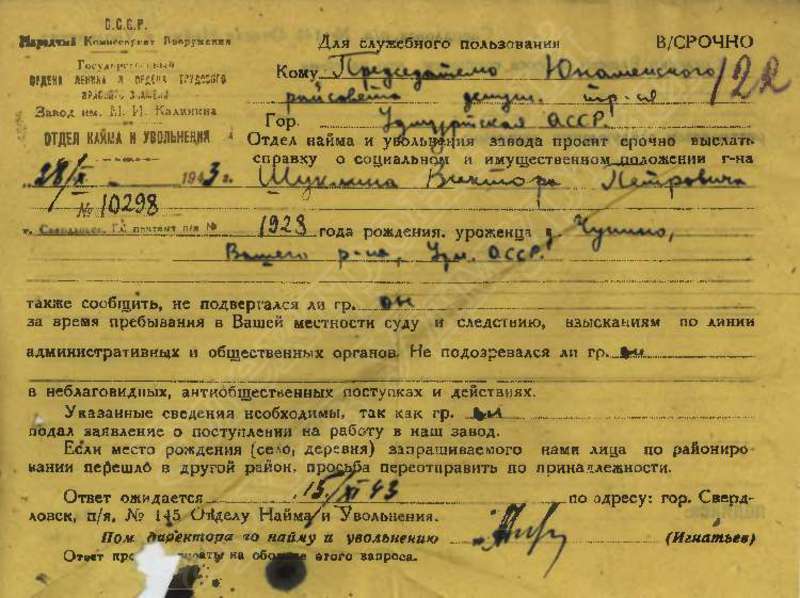 С.С.С.Р.
Народный Комиссариат Вооружения
Государственный
ОРДЕНА ЛЕНИНА И ОРДЕНА ТРУДОВОГО
КРАСНОГО ЗНАМЕНИ
Завод им. М. И. Калинина
ОТДЕЛ НАЙМА И УВОЛЬНЕНИЯ
28/X 1943 г.
№ 10298
г. Свердловск, п/я №
Для служебного пользования
В/СРОЧНО
122
Кому Председателю Юкаменского
райсовета депут. тр-ся
Гор. Удмуртская АССР.
Отдел найма и увольнения завода просит срочно выслать
справку о социальном и имущественном положении г-на
Шуклина Виктора Петровича
1928 года рождения, уроженца д. Чурино,
Вашего р-на, Удм. АССР.
также сообщить, не подвергался ли гр. он
за время пребывания в Вашей местности суду и следствию, взысканиям по линии
административных и общественных органов. Не подозревался ли гр. он
в неблаговидных, антиобщественных поступках и действиях.
Указанные сведения необходимы, так как гр. он
подал заявление о поступлении на работу в наш завод.
Если место рождения (село, деревня) запрашиваемого нами лица по райониро-
вании перешло в другой район, просьба переотправить по принадлежности.
Ответ ожидается 15/XI 43 по адресу: гор. Сверд-
ловск, п/я, № 145 Отделу Найма и Увольнения.
Пом. директора по найму и увольнению (Игнатьев)
Ответ на обороте этого запроса.